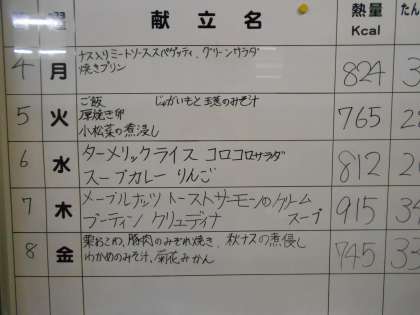 献立名 熱量 たん
Kcal
4 月 ナス入りミートソーススパゲッティ、グリーンサラダ 824 3
焼きプリン
5 火 ご飯 じゃがいもと玉葱のみそ汁 765 2
厚焼き卵
小松菜の煮浸し
6 水 ターメックライス コロコロサラダ 812 2
スープカレー りんご
7 木 メープルナッツトースト サーモンのクリーム 915 34
プーティン クリュディテ スープ
8 金 栗おこわ、豚肉のみぞれ焼き、秋ナスの煮浸し 745 33
わかめのみそ汁、菊花みかん